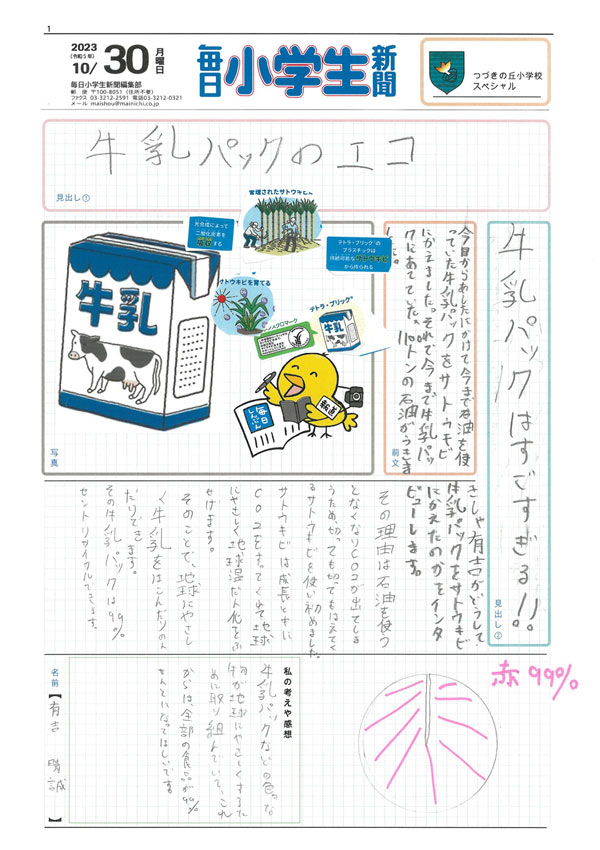 1
2023
(令和5年)
10/30
月曜日
毎日小学生新聞編集部
郵便 〒100-8051(住所不要)
ファクス 03-3212-2591 電話03-3212-0321
メール maishou@mainichi.co.jp
毎日小学生新聞
つづきの丘小学校
スペシャル
牛乳パックのエコ
見出し①
牛乳パックはすごすぎる!!
見出し②
光合成によって
二酸化炭素を
吸収する
管理されたサトウキビ
テトラ・ブリック®の
プラスチックは
持続可能なサトウキビ
から作られる
サトウキビを育てる
テトラ・ブリック®
牛乳
牛乳
毎日しんぶん
報道
写真
今日からあしたにかけて今まで石油を使
っていた牛乳パックをサトウキビ
にかえました。それで今まで牛乳パッ
クにあてていた。110トンの石油がうきま
した。
前文
きしゃ有吉がどうして
牛乳パックをサトウキビ
にかえたのかをインタ
ビューします。
その理由は石油を使う
となくなりCO2が出てしま
うため切っても切ってもはえてく
るサトウキビを使い初めました。
サトウキビは成長とともに
CO2をすってくれて地球
にやさしく地球温だん化をふ
せげます。
そのことで、地球にやさし
く牛乳をはこんだりのん
だりできます。
その牛乳パックは99%
セントリサイクルできます。
赤99%
私の考えや感想
牛乳パックなどの色っな
物が地球にやさしくするた
めに取り組んでいて、これ
からは、全部の食品が99%
せんとになってほしいです
名前【有吉 晴誠】